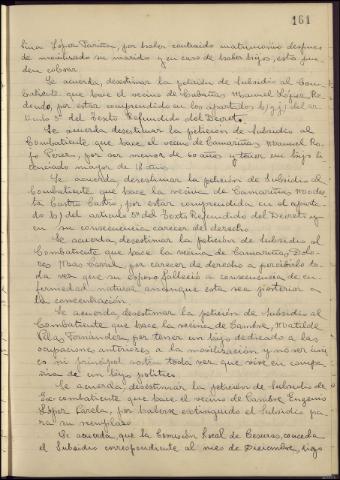 161
lina López Fariña, por haber contraido matrimonio despues
de movilizado su marido y en caso de haber hijos, esta pue-
den cobrar.
Se acuerda, desestimar la petición de Subsidio al Com-
batiente que hace el vecino de Cabañas Manuel López Re-
dondo, por estar comprendido en los apartados b) y j) del ar-
tículo 5º del Texto Refundido del Decreto.
Se acuerda desestimar la petición de Subsidio al
Combatiente que hace el vecino de Camariñas Manuel Ra-
Perez, por ser menor de 60 años y tener un hijo li-
cenciado mayor de 18 años.
Se acuerda desestimar la petición de Subsidio al
Combatiente que hace la vecina de Camariñas Modes-
ta Castro Castro, por estar comprendida en el aparta-
do b) del articulo 5º del Texto Refundido del Decreto y
en su consecuencia carecer del derecho.
Se acuerda desestimar la petición de Subsidio al
Combatiente que hace la vecina de Camariñas Dolo-
res por carecer de derecho a percibirlo to-
da vez que su esposo falleció a consecuencia de en-
fermedad natural aunque esta sea posterior a
la concentración.
Se acuerda, desestimar la petición de Subsidio al
Combatiente que hace la vecina de Cambre, Matilde
Fernandez, por tener un hijo dedicado a las
ocupaciones anteriores a la movilización y no ser uni-
co ni principal sostén toda vez que vive en compa-
ñia de un hijo politico.
Se acuerda, desestimar la petición de Subsidio de
Ex-combatiente que hace el vecino de Cambre Eugenio
López Varela, por haberse extinguido el Subsidio pa-
ra su reemplazo.
Se acuerda, que la Comisión local de Cesuras, conceda
el Subsidio correspondiente al mes de Diciembre, hijo